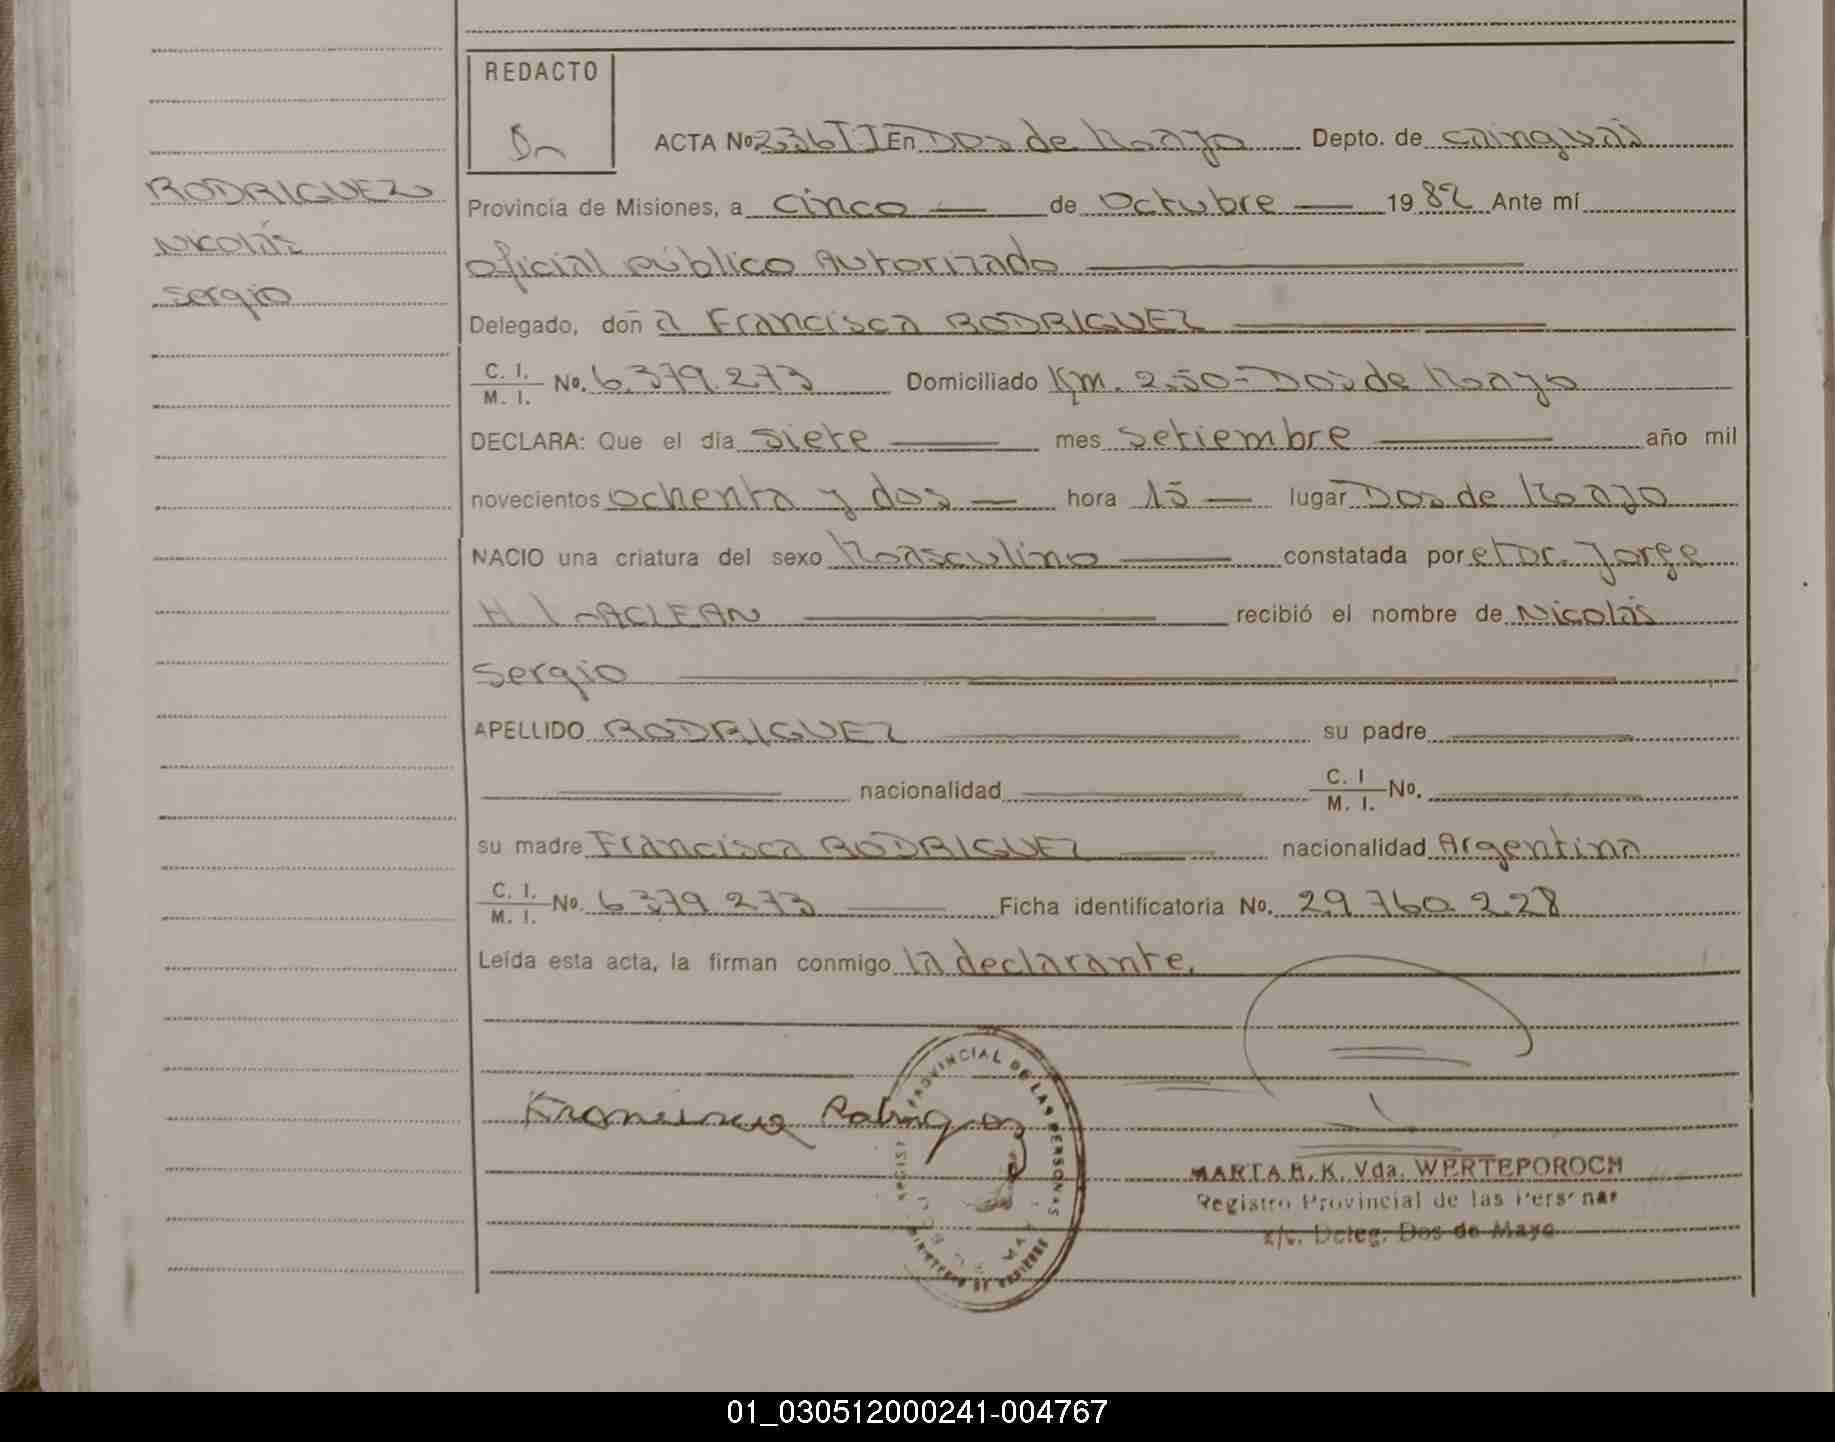 REDACTO
ACTA No 236 II En Dos de Mayo Depto. de Cainguás
RODRIGUEZ
Provincia de Misiones, a cinco de Octubre 1982 Ante mí
Nicolás
oficial público Autorizado
Sergio
Delegado, doña Francisca RODRIGUEZ
C. I. M. I. No. 6.379.273 Domiciliado Km. 250 - Dos de Mayo
DECLARA: Que el día siete mes setiembre año mil
novecientos ochenta y dos hora 15 lugar Dos de Mayo
NACIO una criatura del sexo Masculino constatada por el Dr. Jorge
H. recibió el nombre de Nicolás
Sergio
APELLIDO RODRIGUEZ su padre
nacionalidad C. I M. I. No.
su madre Francisca RODRIGUEZ nacionalidad Argentina
C. I. M. I. No. 6.379.273 Ficha identificatoria No. 29.760.228
Leída esta acta, la firman conmigo la declarante.
PROVINCIAL DE LAS PERSONAS
MARTA H. K. Vda. WERTEPOROCH
Registro Provincial de las Personas
Deleg. Dos de Mayo
01_030512000241-004767